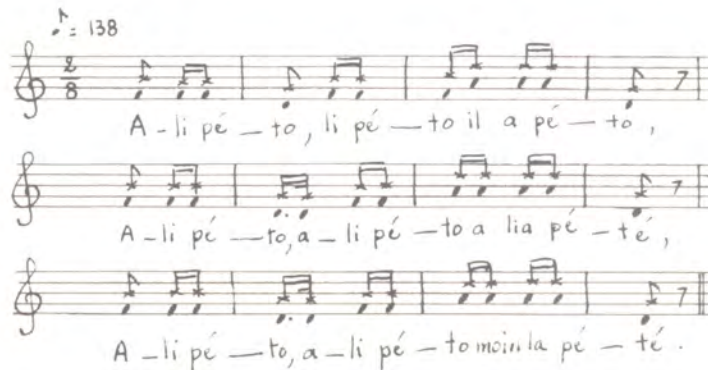 ♪ = 138
2/8
A-li pé-to, li pé-to il a pé-to,
A-li pé-to, a-li pé-to a lia pé-té,
A-li pé-to, a-li pé-to moin la pé-té.